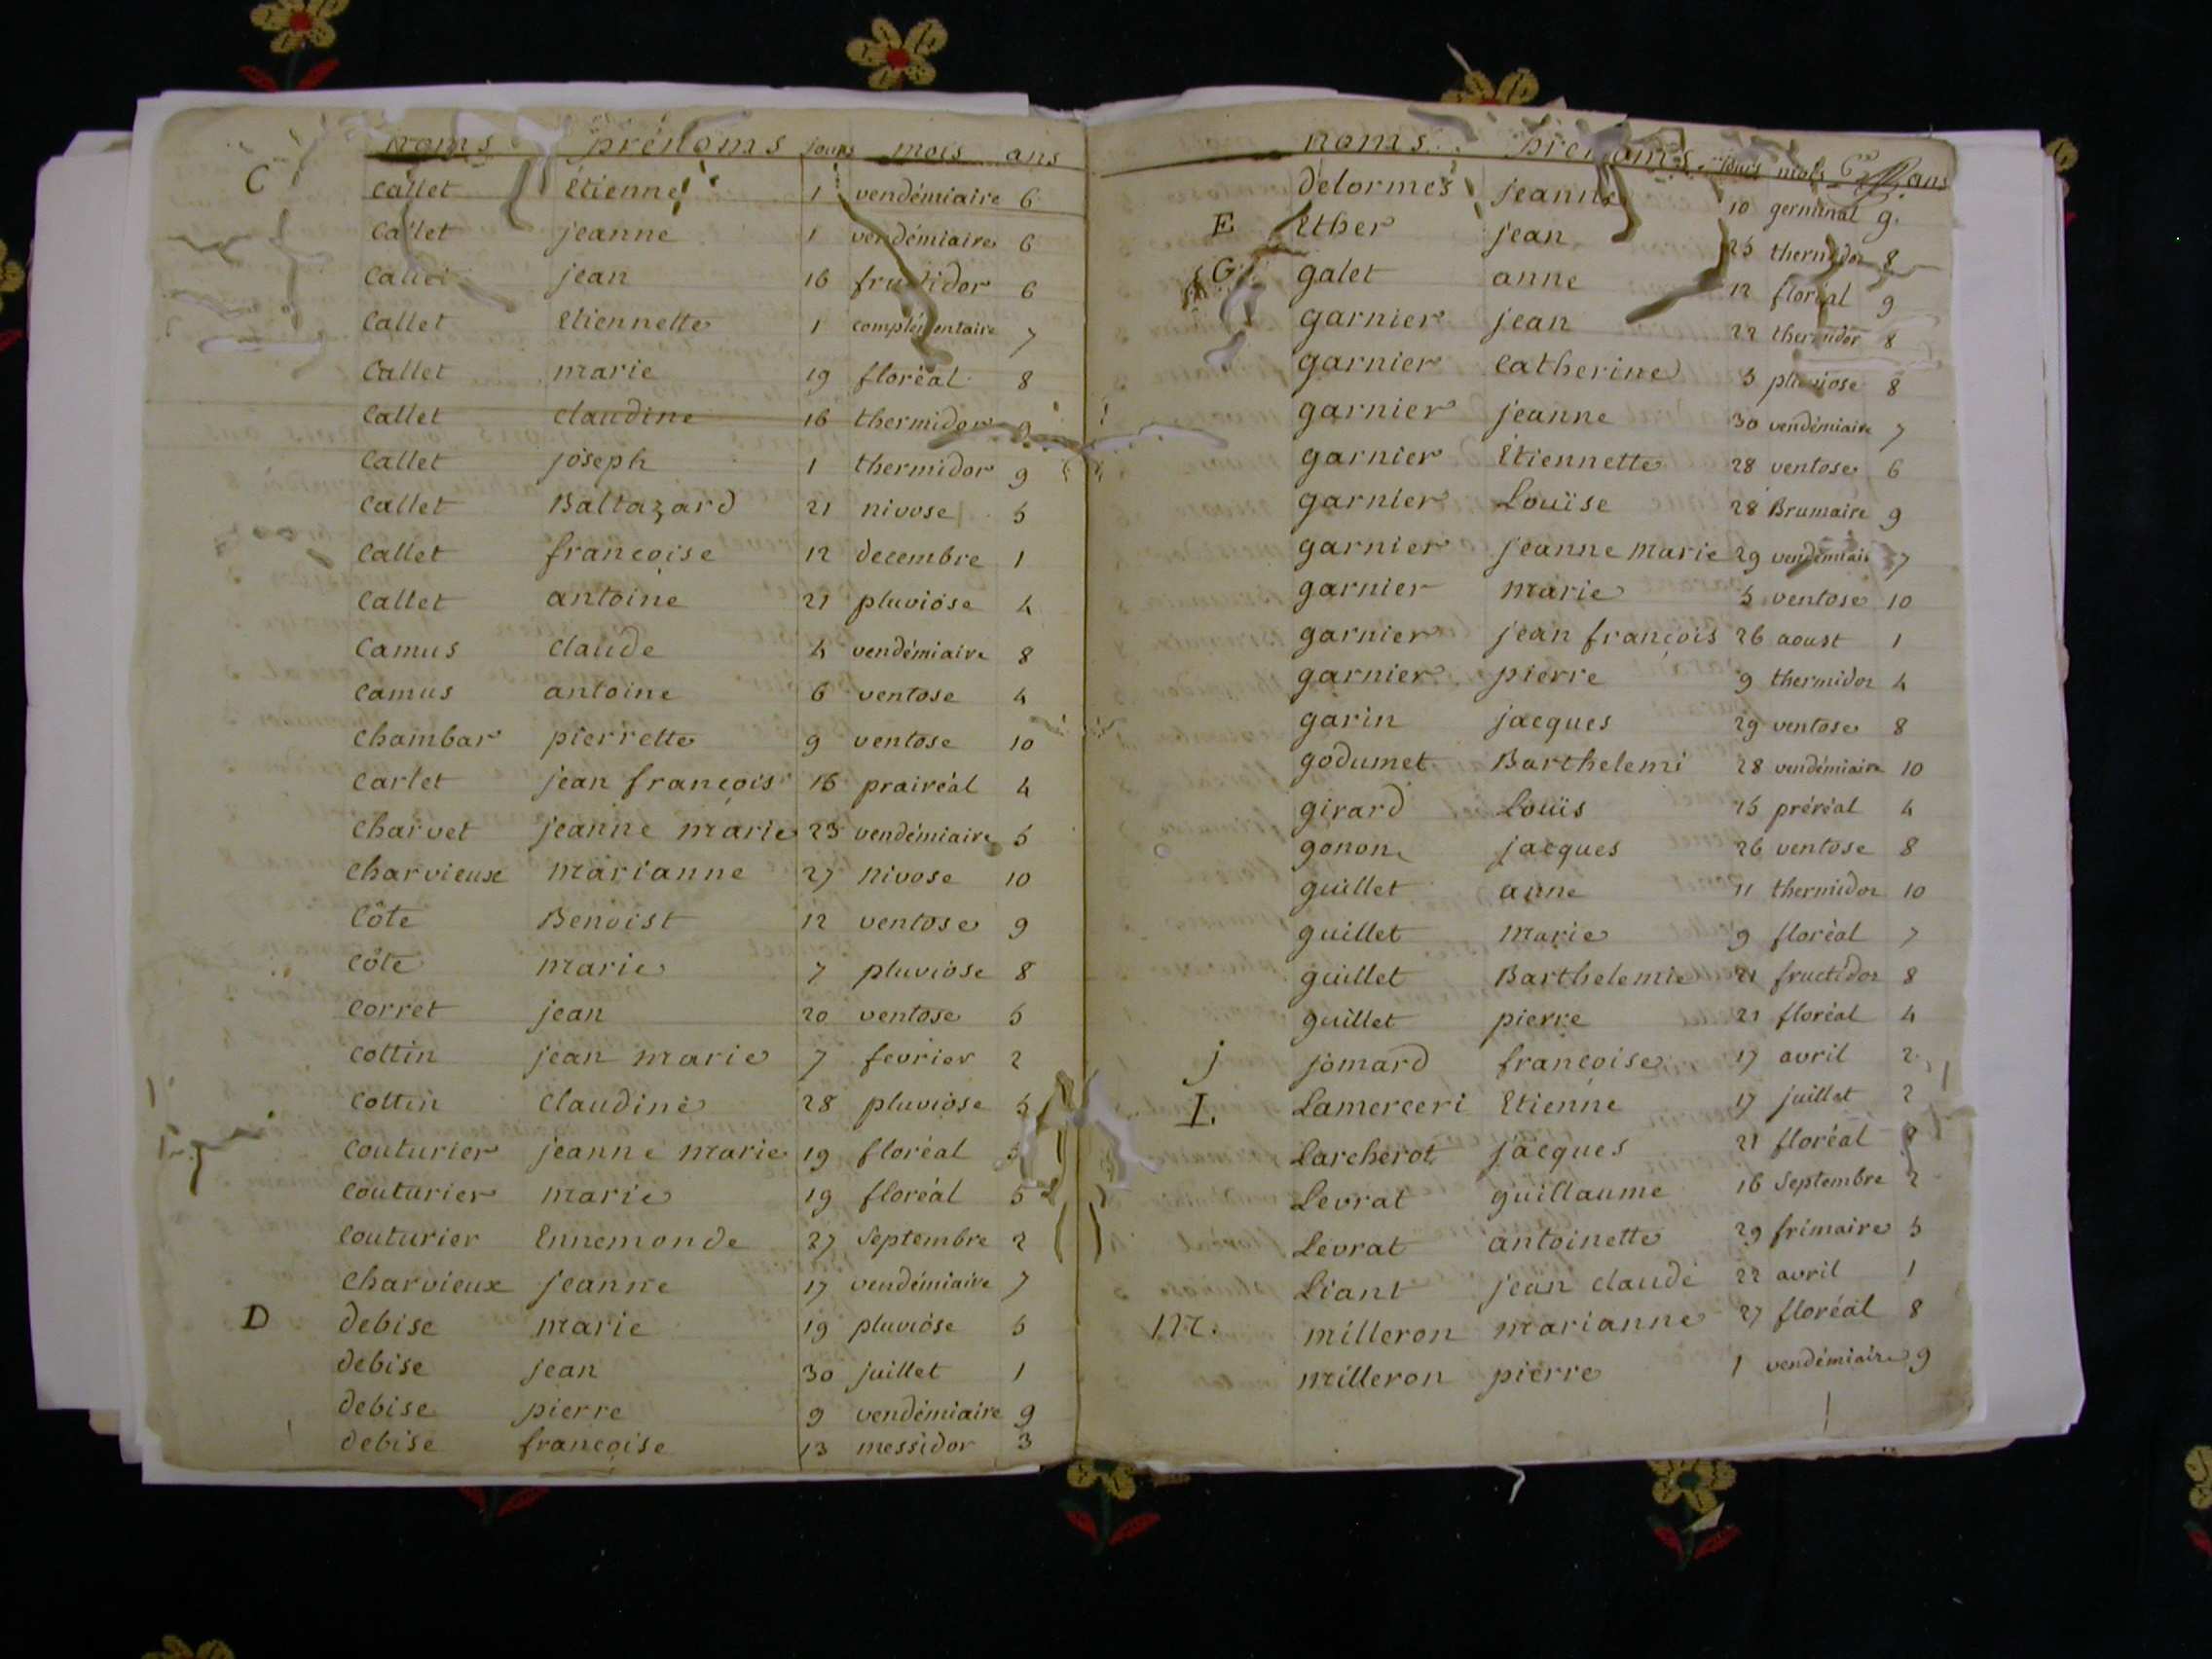 noms prénoms jours mois ans
C Callet Étienne 1 vendémiaire 6
Callet jeanne 1 vendémiaire 6
jean 16 fructidor 6
Callet Etiennette 1 complémentaire 7
Callet marie 19 floréal 8
Callet claudine 16 thermidor 9
Callet joseph 1 thermidor 9
Callet Baltazard 21 nivose 5
Callet francoise 12 decembre 1
Callet antoine 21 pluviose 4
Camus claude 4 vendémiaire 8
Camus antoine 6 ventose 4
Chambar pierrette 9 ventose 10
Carlet jean françois 16 prairéal 4
Charvet jeanne marie 23 vendémiaire 5
Charvieux marianne 27 nivose 10
Côte Benoist 12 ventose 9
Côte marie 7 pluviose 8
Corret jean 20 ventose 5
Cottin jean marie 7 fevrier 2
Cottin Claudine 28 pluviose 5
Couturier jeanne marie 19 floréal
Couturier marie 19 floréal 5
Couturier Ennemonde 27 Septembre 2
Charvieux jeanne 17 vendémiaire 7
D debise marie 19 pluviôse 5
debise jean 30 juillet 1
debise pierre 9 vendémiaire 9
debise françoise 13 messidor 3
noms prenoms jours mois ans
delormes jeanne 10 germinal 9.
E Ether jean 25 thermidor 8
G galet anne 12 floréal 9
garnier jean 22 thermidor 8
garnier Catherine 5 pluviose 8
garnier jeanne 30 vendémiaire 7
garnier Étiennette 28 ventose 6
garnier Louise 28 Brumaire 9
garnier jeanne marie 29 vendémiair 7
garnier marie 5 ventose 10
garnier jean françois 26 aoust 1
garnier pierre 9 thermidor 4
garin jacques 29 ventose 8
godumet Barthelemi 28 vendémiaire 10
girard Louis 15 préréal 4
gonon jacques 26 ventose 8
guillet anne 11 thermidor 10
guillet marie 9 floréal 7
guillet Barthelemie 21 fructidor 8
guillet pierre 21 floréal 4
j jomard francoise 17 avril 2
L Lamerceri Etienne 17 juillet 2
Larcherot jacques 21 floréal
Levrat guillaume 16 Septembre 2
Levrat antoinette 29 frimaire 5
Liant jean claude 22 avril 1
m. milleron marianne 27 floréal 8
milleron pierre 1 vendémiaire 9